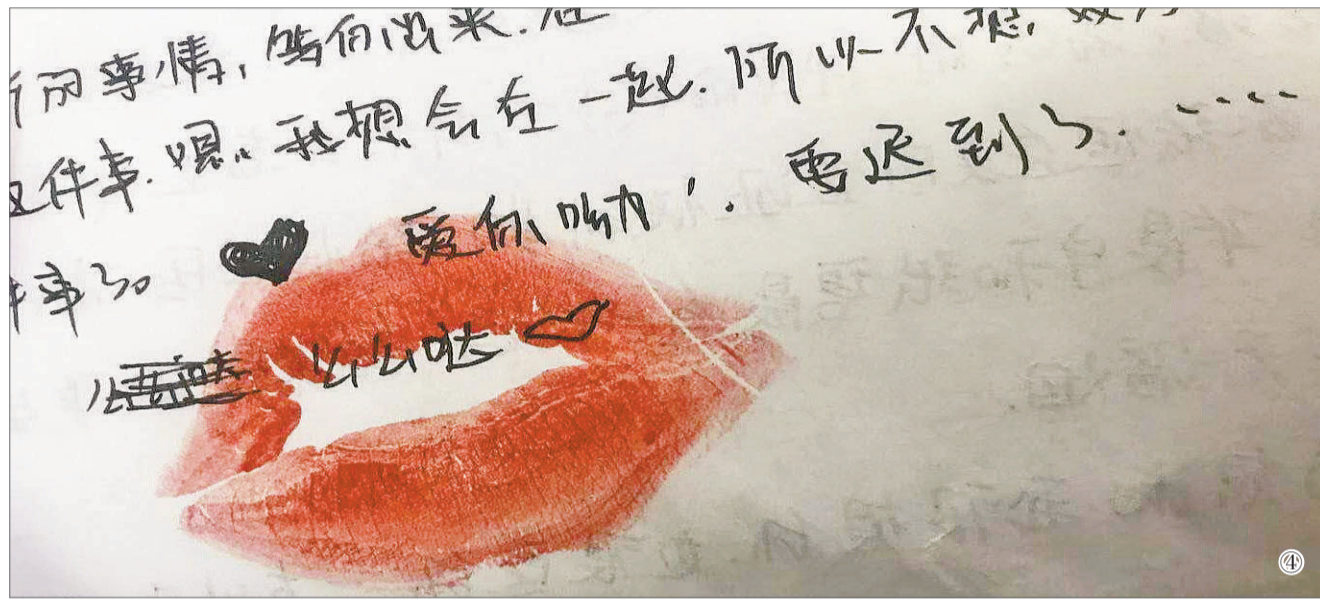 的事情,等你出来.在
这件事.嗯。我想会在一起.所以不想.
件事了。 爱你呦!.要迟到了.····
么么哒
④